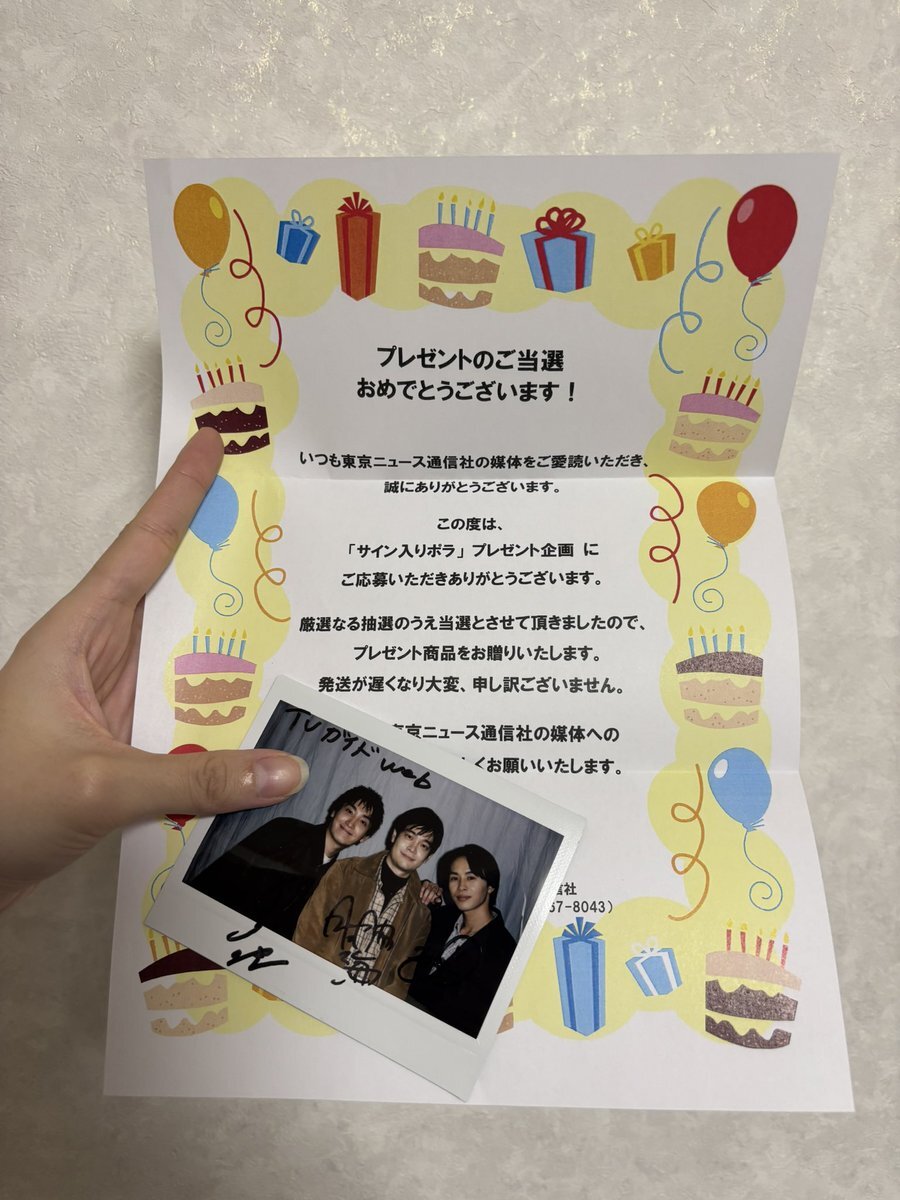 プレゼントのご当選
おめでとうございます！
いつも東京ニュース通信社の媒体をご愛読いただき、
誠にありがとうございます。
この度は、
「サイン入りポラ」プレゼント企画 に
ご応募いただきありがとうございます。
厳選なる抽選のうえ当選とさせて頂きましたので、
プレゼント商品をお贈りいたします。
発送が遅くなり大変、申し訳ございません。
京ニュース通信社の媒体への
くお願いいたします。
信社
67-8043）
TVガイド
web